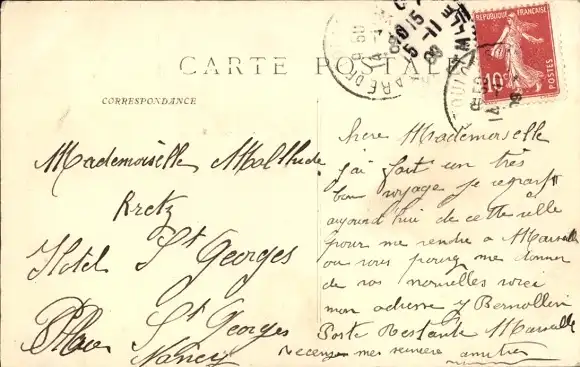 CARTE POSTALE
CORRESPONDANCE
REPUBLIQUE FRANÇAISE
10
POSTES
Mademoiselle Malthide
Kretz
Hotel St Georges
Place St Georges
Nancy
chere Mademoiselle
j'ai fait un très
bon voyage je repart
aujourd'hui de cette ville
pour me rendre a Marseille
ou vous pourez me donner
de vos nouvelles voici
mon adresse
Poste Restante Marseille
Recevez mes amitiés